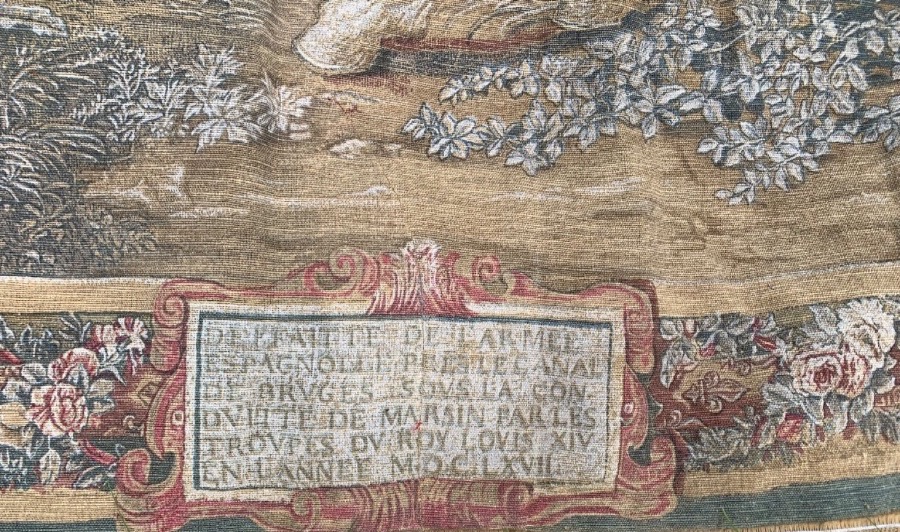 DEFFAITTE DE L'ARMEE
ESPAGNOLLE PRES LE CANAL
DE BRVGES SOUS LA CON
DVITTE DE MARSIN PAR LES
TROVPES DV ROY LOVIS XIV
EN L'ANNEE M.D.C.LXVII